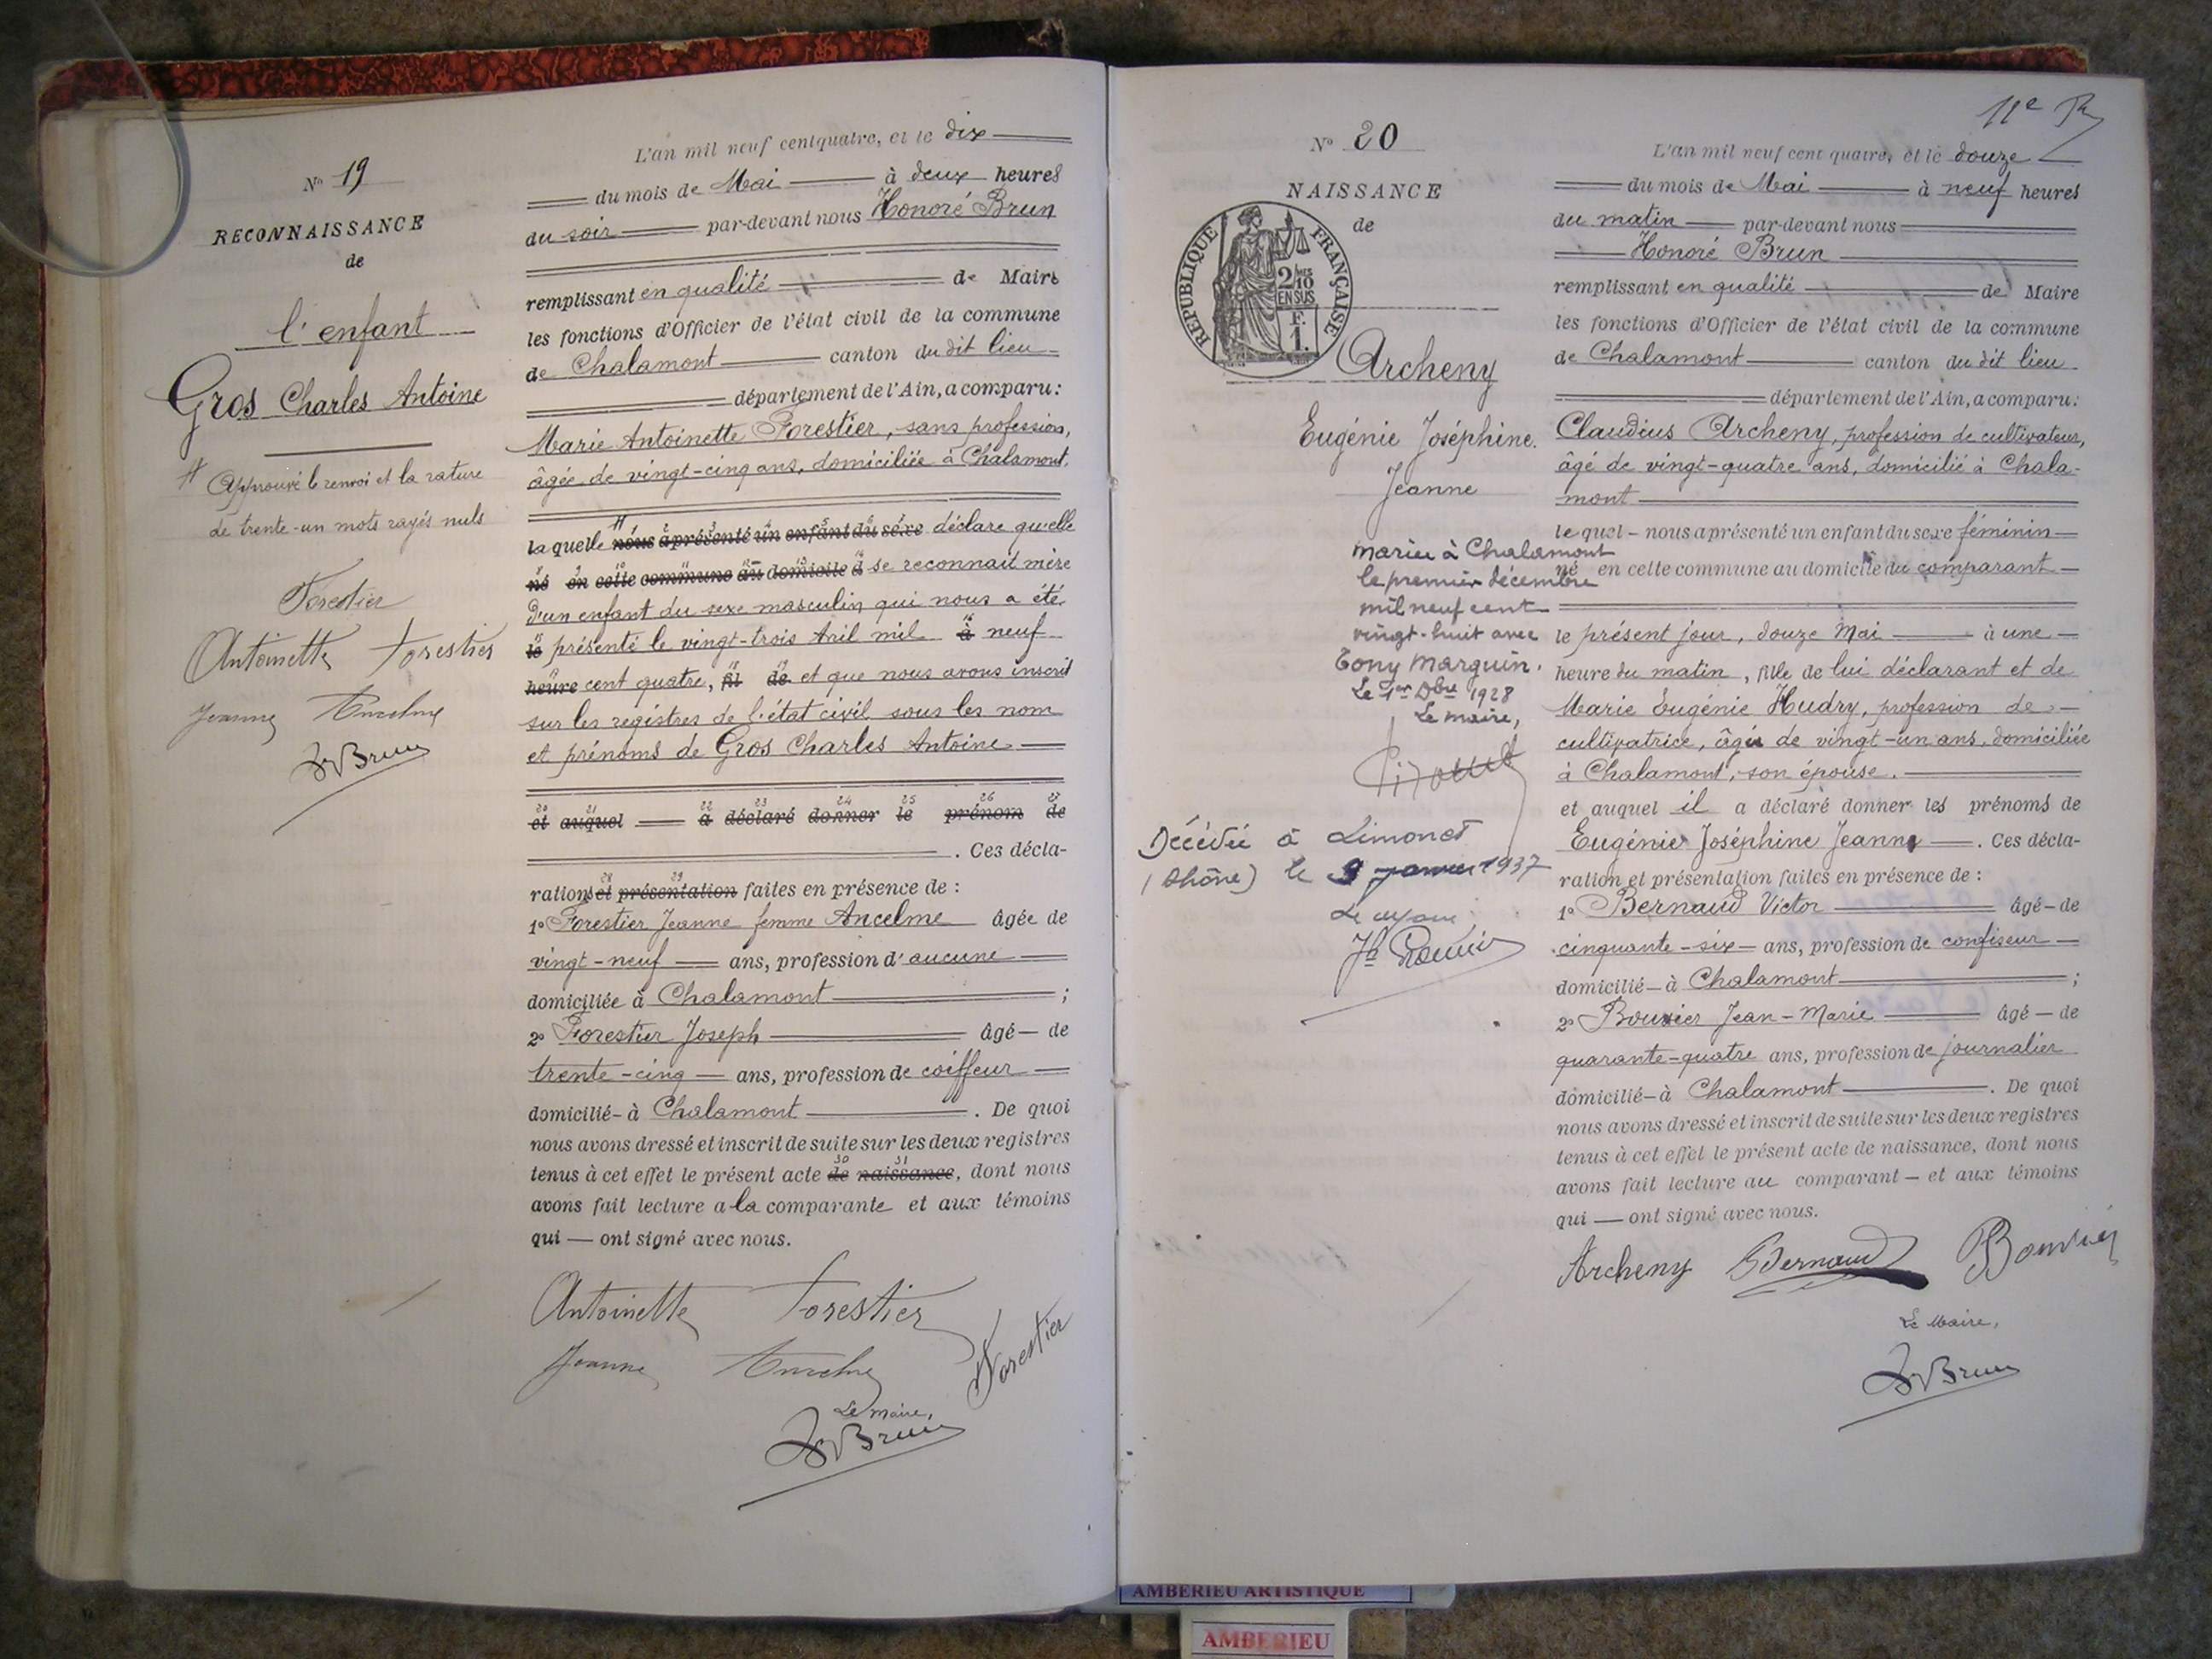 N° 19
RECONNAISSANCE
de
l'enfant
Gros Charles Antoine
# Approuvé le renvoi et la rature
de trente-un mots rayés nuls
Forestier
Antoinette Forestier
Jeanne Ancelme
HBrun
L'an mil neuf cent quatre, et le dix
du mois de Mai à deux heures
du soir par-devant nous Honoré Brun
remplissant en qualité de Maire
les fonctions d'Officier de l'état civil de la commune
de Chalamont canton du dit lieu
département de l'Ain, a comparu:
Marie Antoinette Forestier, sans profession,
âgée de vingt-cinq ans, domiciliée à Chalamont,
laquelle # nous a présenté un enfant du sexe déclare qu'elle
né en cette commune au domicile d se reconnait mère
d'un enfant du sexe masculin qui nous a été
le présenté le vingt-trois Avril mil à neuf
heure cent quatre, fil de et que nous avons inscrit
sur les registres de l'état civil sous les nom
et prénoms de Gros Charles Antoine
20 21 22 23 24 25 26 27
et auquel a déclaré donner le prénom de
. Ces décla-
28 29
rations et présentation faites en présence de :
1° Forestier Jeanne femme Ancelme âgée de
vingt-neuf ans, profession d'aucune
domiciliée à Chalamont ;
2° Forestier Joseph âgé de
trente-cinq ans, profession de coiffeur
domicilié à Chalamont . De quoi
nous avons dressé et inscrit de suite sur les deux registres
30 31
tenus à cet effet le présent acte de naissance, dont nous
avons fait lecture a la comparante et aux témoins
qui ont signé avec nous.
Antoinette Forestier
Jeanne Ancelme Forestier
Le Maire,
HBrun
11e
N° 20
NAISSANCE
de
REPUBLIQUE FRANÇAISE
2/10
EN SUS
F.
1.
Archeny
Eugénie Joséphine
Jeanne
mariée à Chalamont
le premier décembre
mil neuf cent
vingt-huit avec
Tony Marguin.
Le 1er Dbre 1928
Le maire,
Décédée à Limonest
(Rhône) le 9 janvier 1937
Le Maire
L'an mil neuf cent quatre, et le douze
du mois de Mai à neuf heures
du matin par-devant nous
Honoré Brun
remplissant en qualité de Maire
les fonctions d'Officier de l'état civil de la commune
de Chalamont canton du dit lieu
département de l'Ain, a comparu:
Claudius Archeny, profession de cultivateur,
âgé de vingt-quatre ans, domicilié à Chala-
mont
lequel nous a présenté un enfant du sexe féminin
né en cette commune au domicile du comparant
le présent jour, douze Mai à une
heure du matin, fille de lui déclarant et de
Marie Eugénie Hudry, profession de
cultivatrice, âgée de vingt-un ans, domiciliée
à Chalamont, son épouse.
et auquel il a déclaré donner les prénoms de
Eugénie Joséphine Jeanne . Ces décla-
ration et présentation faites en présence de :
1° Bernaud Victor âgé de
cinquante-six ans, profession de confiseur
domicilié à Chalamont ;
2° Bouvier Jean-Marie âgé de
quarante-quatre ans, profession de journalier
domicilié à Chalamont . De quoi
nous avons dressé et inscrit de suite sur les deux registres
tenus à cet effet le présent acte de naissance, dont nous
avons fait lecture au comparant et aux témoins
qui ont signé avec nous.
Archeny Bernaud Bouvier
Le Maire,
HBrun
AMBERIEU ARTISTIQUE
AMBERIEU